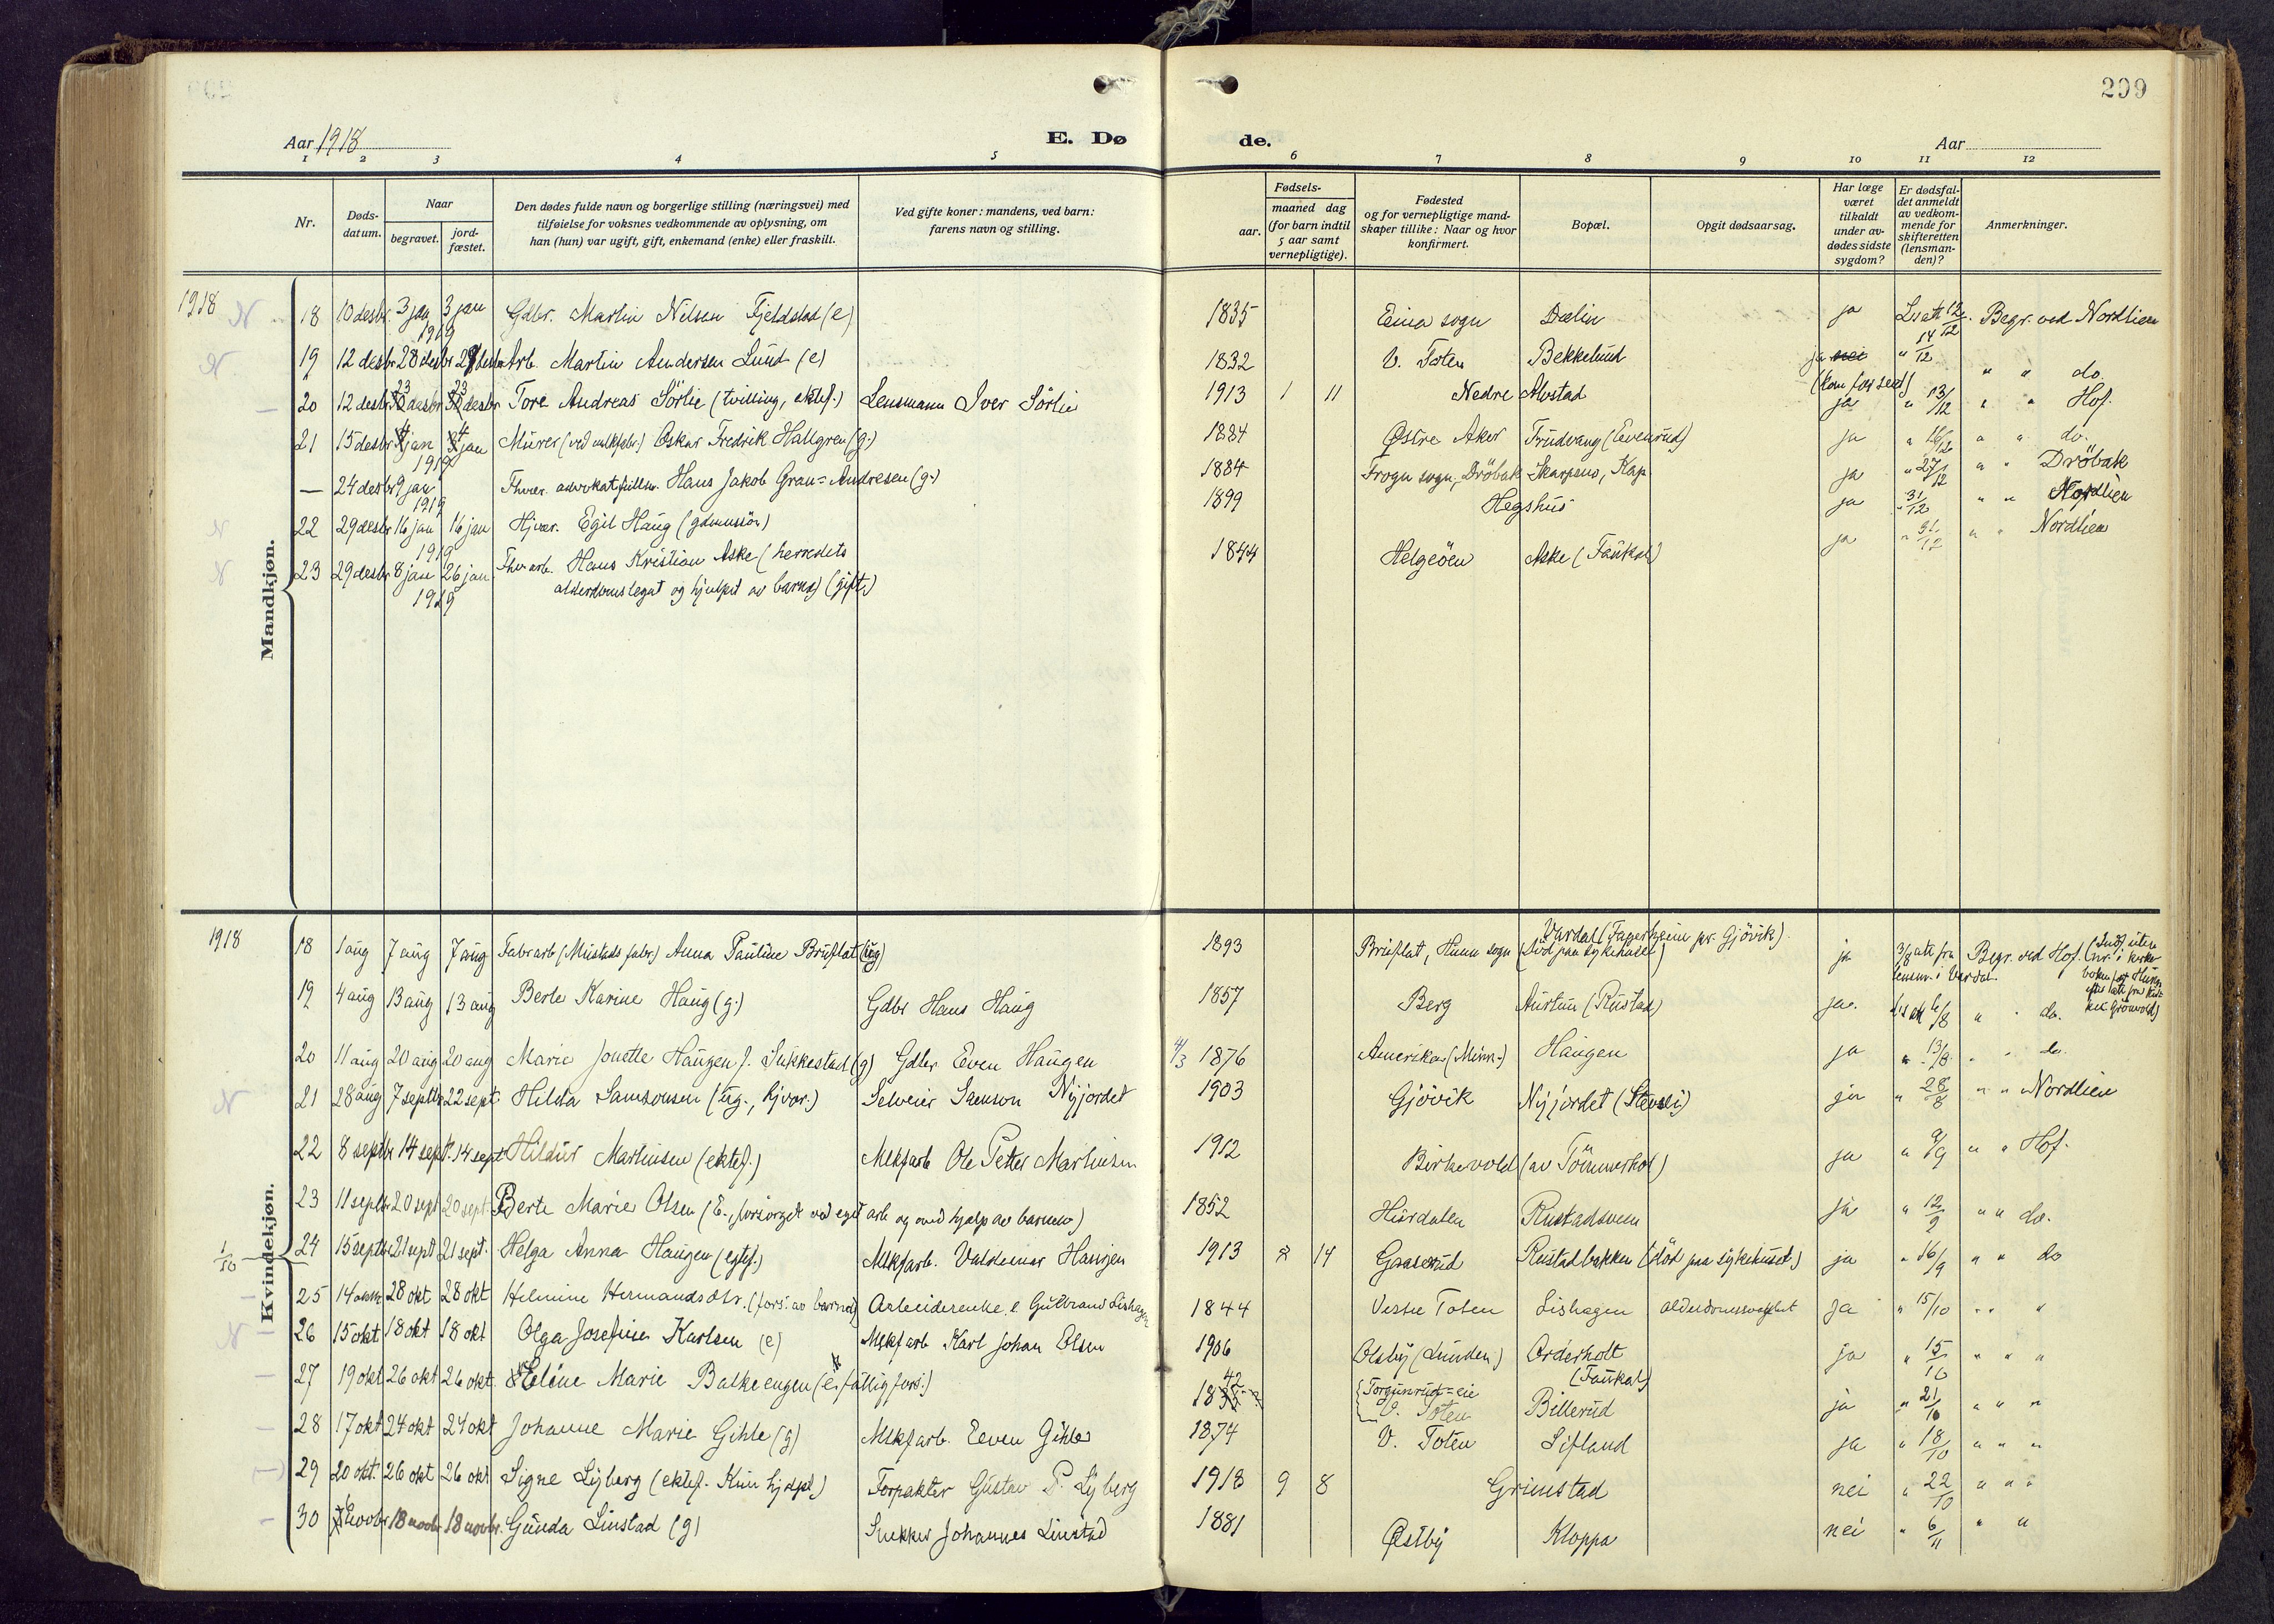 209
Aar 1918
E. Dø
de.
Aar
1 2 3 4 5
6 7 8 9 10 11 12
Nr.
Døds-
datum.
Naar
begravet.
jord-
fæstet.
Den dødes fulde navn og borgerlige stilling (næringsvei) med
tilføielse for voksnes vedkommende av oplysning, om
han (hun) var ugift, gift, enkemand (enke) eller fraskilt.
Ved gifte koner: mandens, ved barn:
farens navn og stilling.
Fødsels-
aar.
maaned dag
(for barn indtil
5 aar samt
vernepligtige).
Fødested
og for vernepligtige mand-
skaper tillike: Naar og hvor
konfirmert.
Bopæl.
Opgit dødsaarsag.
Har læge
været
tilkaldt
under av-
dødes sidste
sygdom?
Er dødsfal-
det anmeldt
av vedkom-
mende for
skifteretten
(lensman-
den)?
Anmerkninger.
Mandkjøn.
1918 N 18 10 desbr. 3 jan 1919 3 jan Gdbr. Martin Nilsen Fjeldstad (e) 1835 Eina sogn Dælin ja Ls att 12/12. Begr. ved Nordlien
N. 19 12 desbr 28 desbr 28 desbr Arb. Martin Andersen Lund (e) 1832 V. Toten Bekkelund ja nei (kom for sent) " 14/12 " " do.
20 12 desbr 23 desbr 23 desbr Tore Andreas Sörlie (tvilling, ektef.) Lensmann Iver Sörlie 1913 1 11 Nedre Alvstad ja " 13/12 " " Hof.
21 15 desbr 4 jan 1919 4 jan Murer Oskar Fredrik Hallgren (g.) 1884 Østre Aker Trudvang (Evenrud) ja " 16/12 " " do.
— 24 desbr 9 jan 1919 Hans Jakob Gran-Andresen (g.) 1884 Frogn sogn, Dröbak Skarpsno, Kap ja " 27/12 " " Dröbak
N 22 29 desbr 16 jan 1919 16 jan Hjvær. Egil Haug (gdmannssön) 1899 Hegshus ja " 31/12 " " Nordlien
N 23 29 desbr 8 jan 1919 26 jan Hans Kristian Aske (herredets
alderdomslegat og hjulpet av barna) (gift) 1844 Helgeöen Aske (Faukal) ja " 31/12 " " Nordlien
Kvindekjøn.
1918 18 1 aug 7 aug 7 aug Fabrarb (Mustads fabr.) Anna Pauline Bruflat (ug) 1893 Bruflat, Hunn sogn Vardal (Fagerheim pr. Gjövik)
(död paa sykehuset) ja 3/8 att fra lensm. i Vardal. Begr. ved Hof.
19 4 aug 13 aug 13 aug Berte Karine Haug (g.) Gdbr Hans Haug 1857 Berg Austun (Rustad) ja. Ls att 6/8 " " do.
20 11 aug 20 aug 20 aug Marie Jonette Haugen f. Sukkestad (g) Gdbr Even Haugen 4/3 1876 Amerika (Minn.) Haugen ja " 13/8 " " do
N 21 28 aug 7 septbr 22 sept. Hilda Samsonsen (ug., hjvær.) Selveier Samson Nyjordet 1903 Gjövik Nyjordet ja " 28/8 " " Nordlien
22 8 septbr 14 sept. 14 sept Hildur Martinsen (ektef.) Mekfarb Ole Petter Martinsen 1912 Birkevold (av Tömmerhol) ja " 9/9 " " Hof.
23 11 septbr 20 sept 20 sept. Berte Marie Olsen (E., forsörget ved eget arb og med hjelp av barnene) 1852 Hurdalen Rustadsveen ja " 12/9 " " do.
1/10 24 15 septbr 21 sept 21 sept. Helga Anna Haugen (egtef.) Mekfarb. Valdemar Haugen 1913 2 14 Gaaserud Rustadbakken (död paa sykehuset) ja " 16/9 " " do
25 14 oktbr 28 okt 28 okt Helmine Hermandsdtr. (fors. av barnet) Arbeiderenke e. Gudbrand Lishagen 1844 Vestre Toten Lishagen alderdomssvakhet ja " 15/10 " " "
N 26 15 okt 18 okt 18 okt Olga Josefine Karlsen (e) Mekfarb Karl Johan Olsen 1906 Olsby (Lunden) Orderholt
(Faukal) ja " 15/10 " " "
27 19 okt 26 okt 26 okt. Eline Marie Balkeengen (e. fattigfors.) 1842 Torgunrud-eie
V. Toten Billerud ja " 21/10 " " "
28 17 okt 24 okt 24 okt Johanne Marie Gihle (g) Mekfarb. Even Gihle 1874 V. Toten Lifland ja " 18/10 " " "
29 20 okt. 26 okt 26 okt Signe Lyberg (ektef. Kun hjdpt.) Forpakter Gustav P. Lyberg 1918 9 8 Grimstad nei " 22/10 " " "
30 novbr 18 novbr 18 novbr. Gunda Linstad (g) Snekker Johannes Linstad 1881 Østby Kloppa nei " 6/11 " "